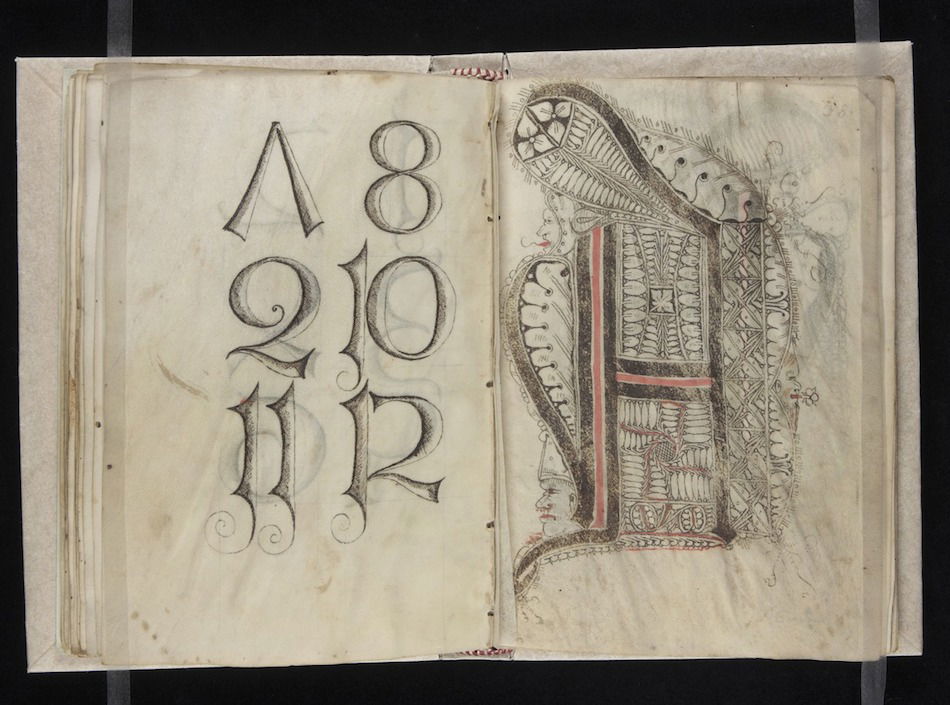 Λ 8
2 10
11 12